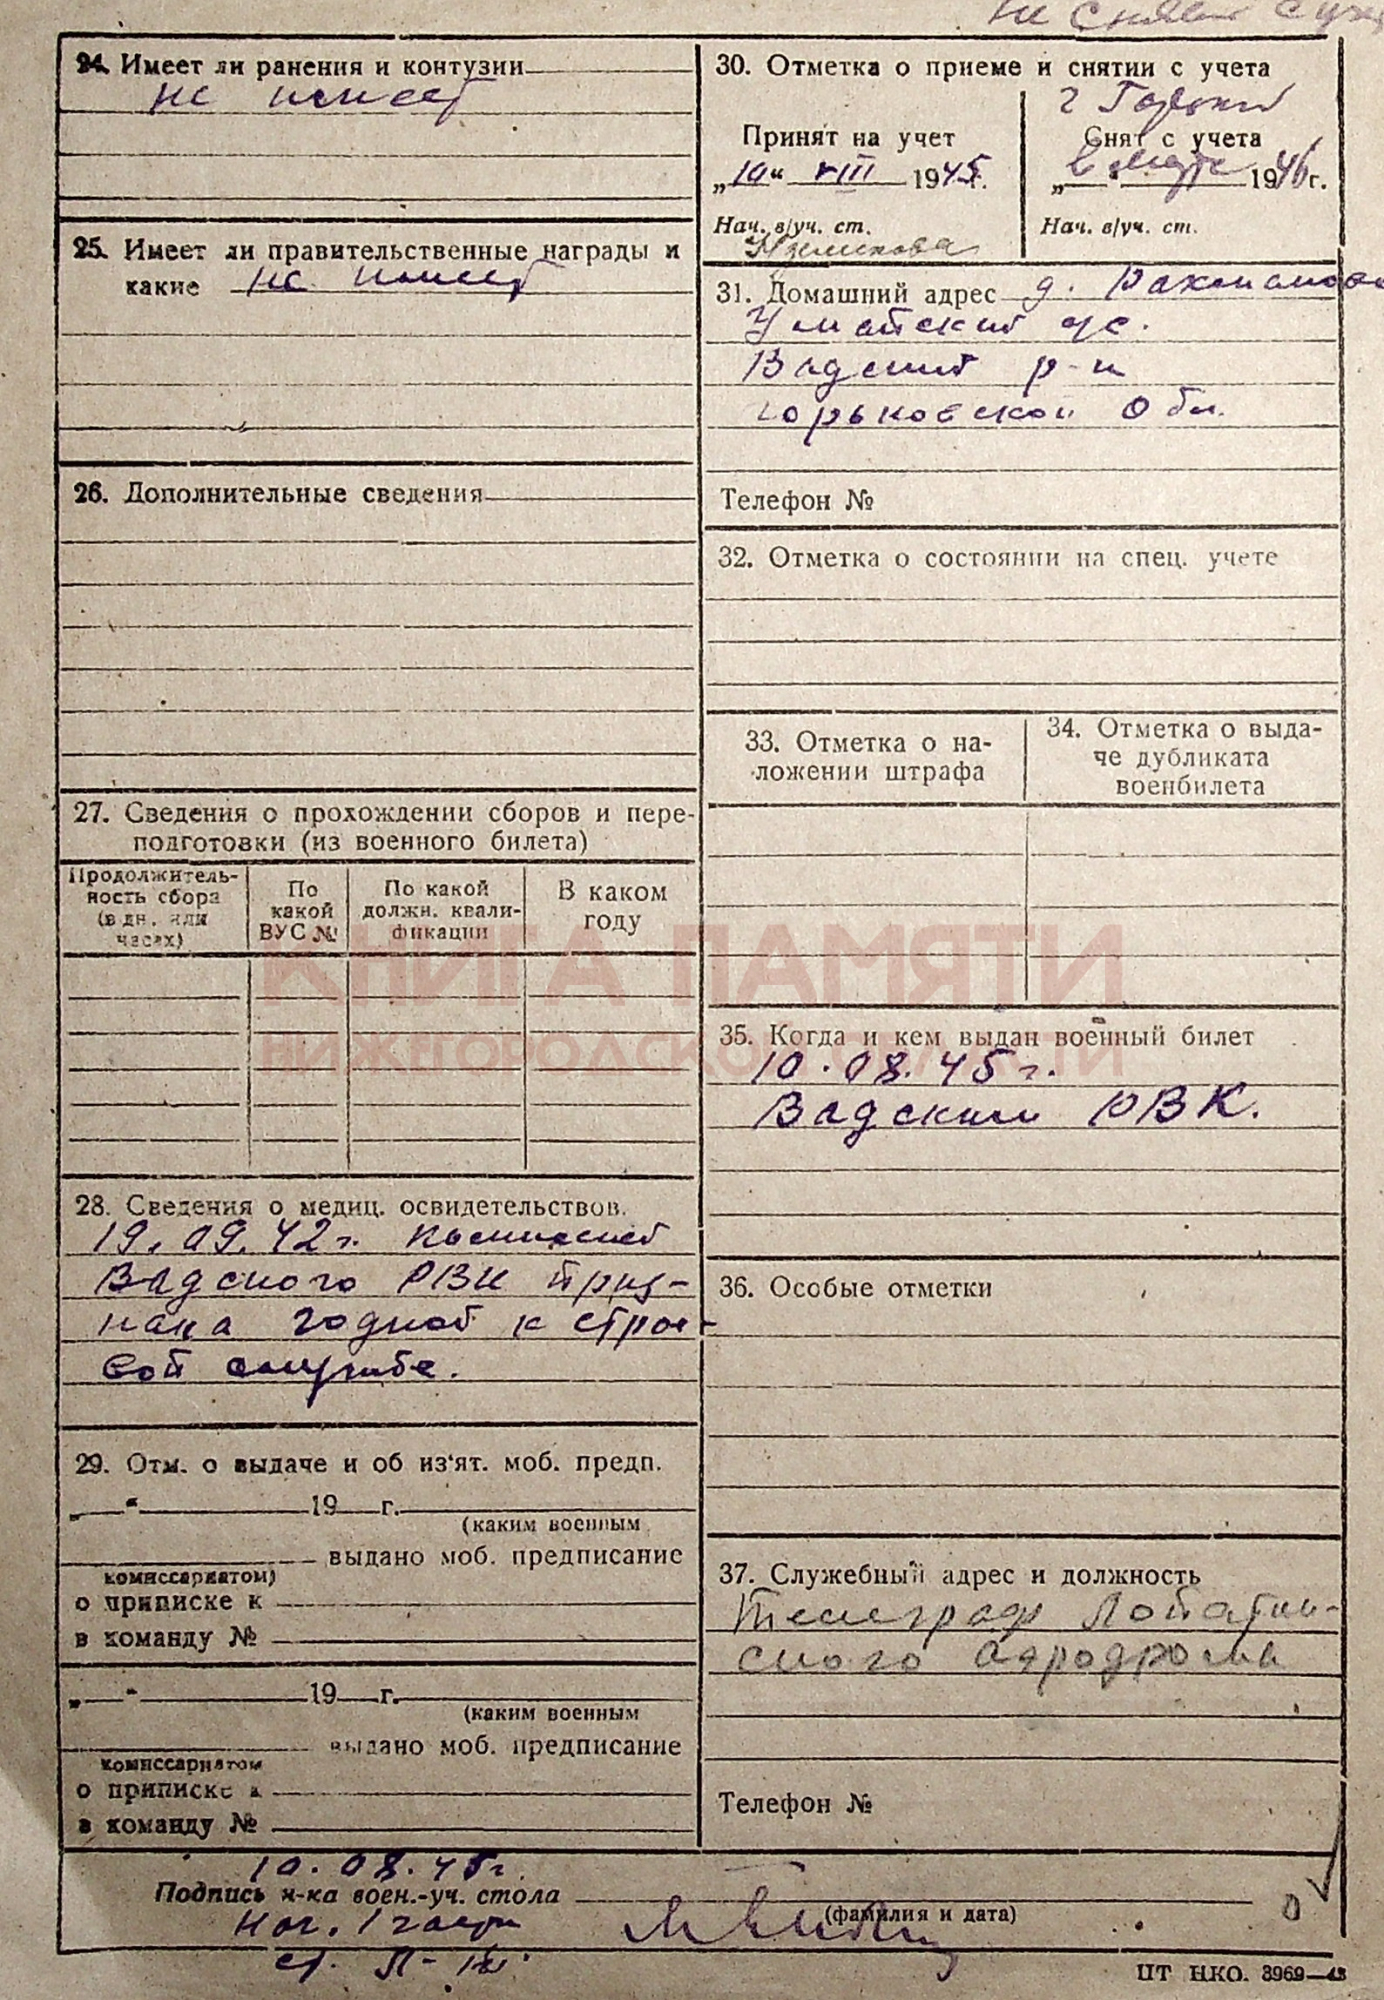 не снят с уч
24. Имеет ли ранения и контузии
не имеет
25. Имеет ли правительственные награды и
какие не имеет
26. Дополнительные сведения
27. Сведения о прохождении сборов и пере-
подготовки (из военного билета)
Продолжитель-
ность сбора
(в дн. или
часах)
По
какой
ВУС №
По какой
должн. квали-
фикации
В каком
году
28. Сведения о медиц. освидетельствов.
19.09.42 г. комиссией
Вадского РВК приз-
нана годной к строе-
вой службе.
29. Отм. о выдаче и об из'ят. моб. предп.
„ “ 19 г.
(каким военным
выдано моб. предписание
комиссариатом)
о приписке к
в команду №
„ “ 19 г.
(каким военным
выдано моб. предписание
комиссариатом
о приписке к
в команду №
30. Отметка о приеме и снятии с учета
Принят на учет
„10“ VIII 1945 г.
Нач. в/уч. ст.
г Горький
Снят с учета
„ “ в марте 1946 г.
Нач. в/уч. ст.
31. Домашний адрес д.
Умайский с/с.
Вадский р-н
Горьковской обл.
Телефон №
32. Отметка о состоянии на спец. учете
33. Отметка о на-
ложении штрафа
34. Отметка о выда-
че дубликата
военбилета
КНИГА ПАМЯТИ
НИЖЕГОРОДСКОЙ ОБЛАСТИ
35. Когда и кем выдан военный билет
10.08.45 г.
Вадским РВК.
36. Особые отметки
37. Служебный адрес и должность
Телеграф Лопатин-
ского аэродрома
Телефон №
10.08.45 г.
Подпись н-ка воен.-уч. стола
(фамилия и дата)
Нач. 1 части
ст. л-т
ЦТ НКО. 3969—43